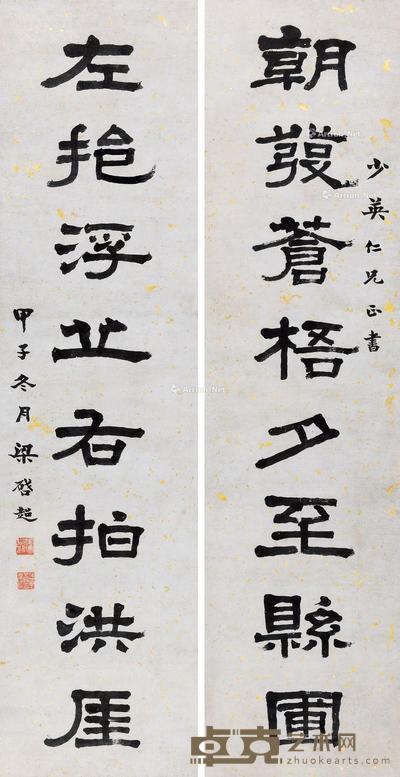 少英仁兄正書
朝發蒼梧夕至縣圃
左挹浮丘右拍洪厓
甲子冬月梁啓超
卓克艺术网
zhuokearts.com
Artron.Net
Artron.Net